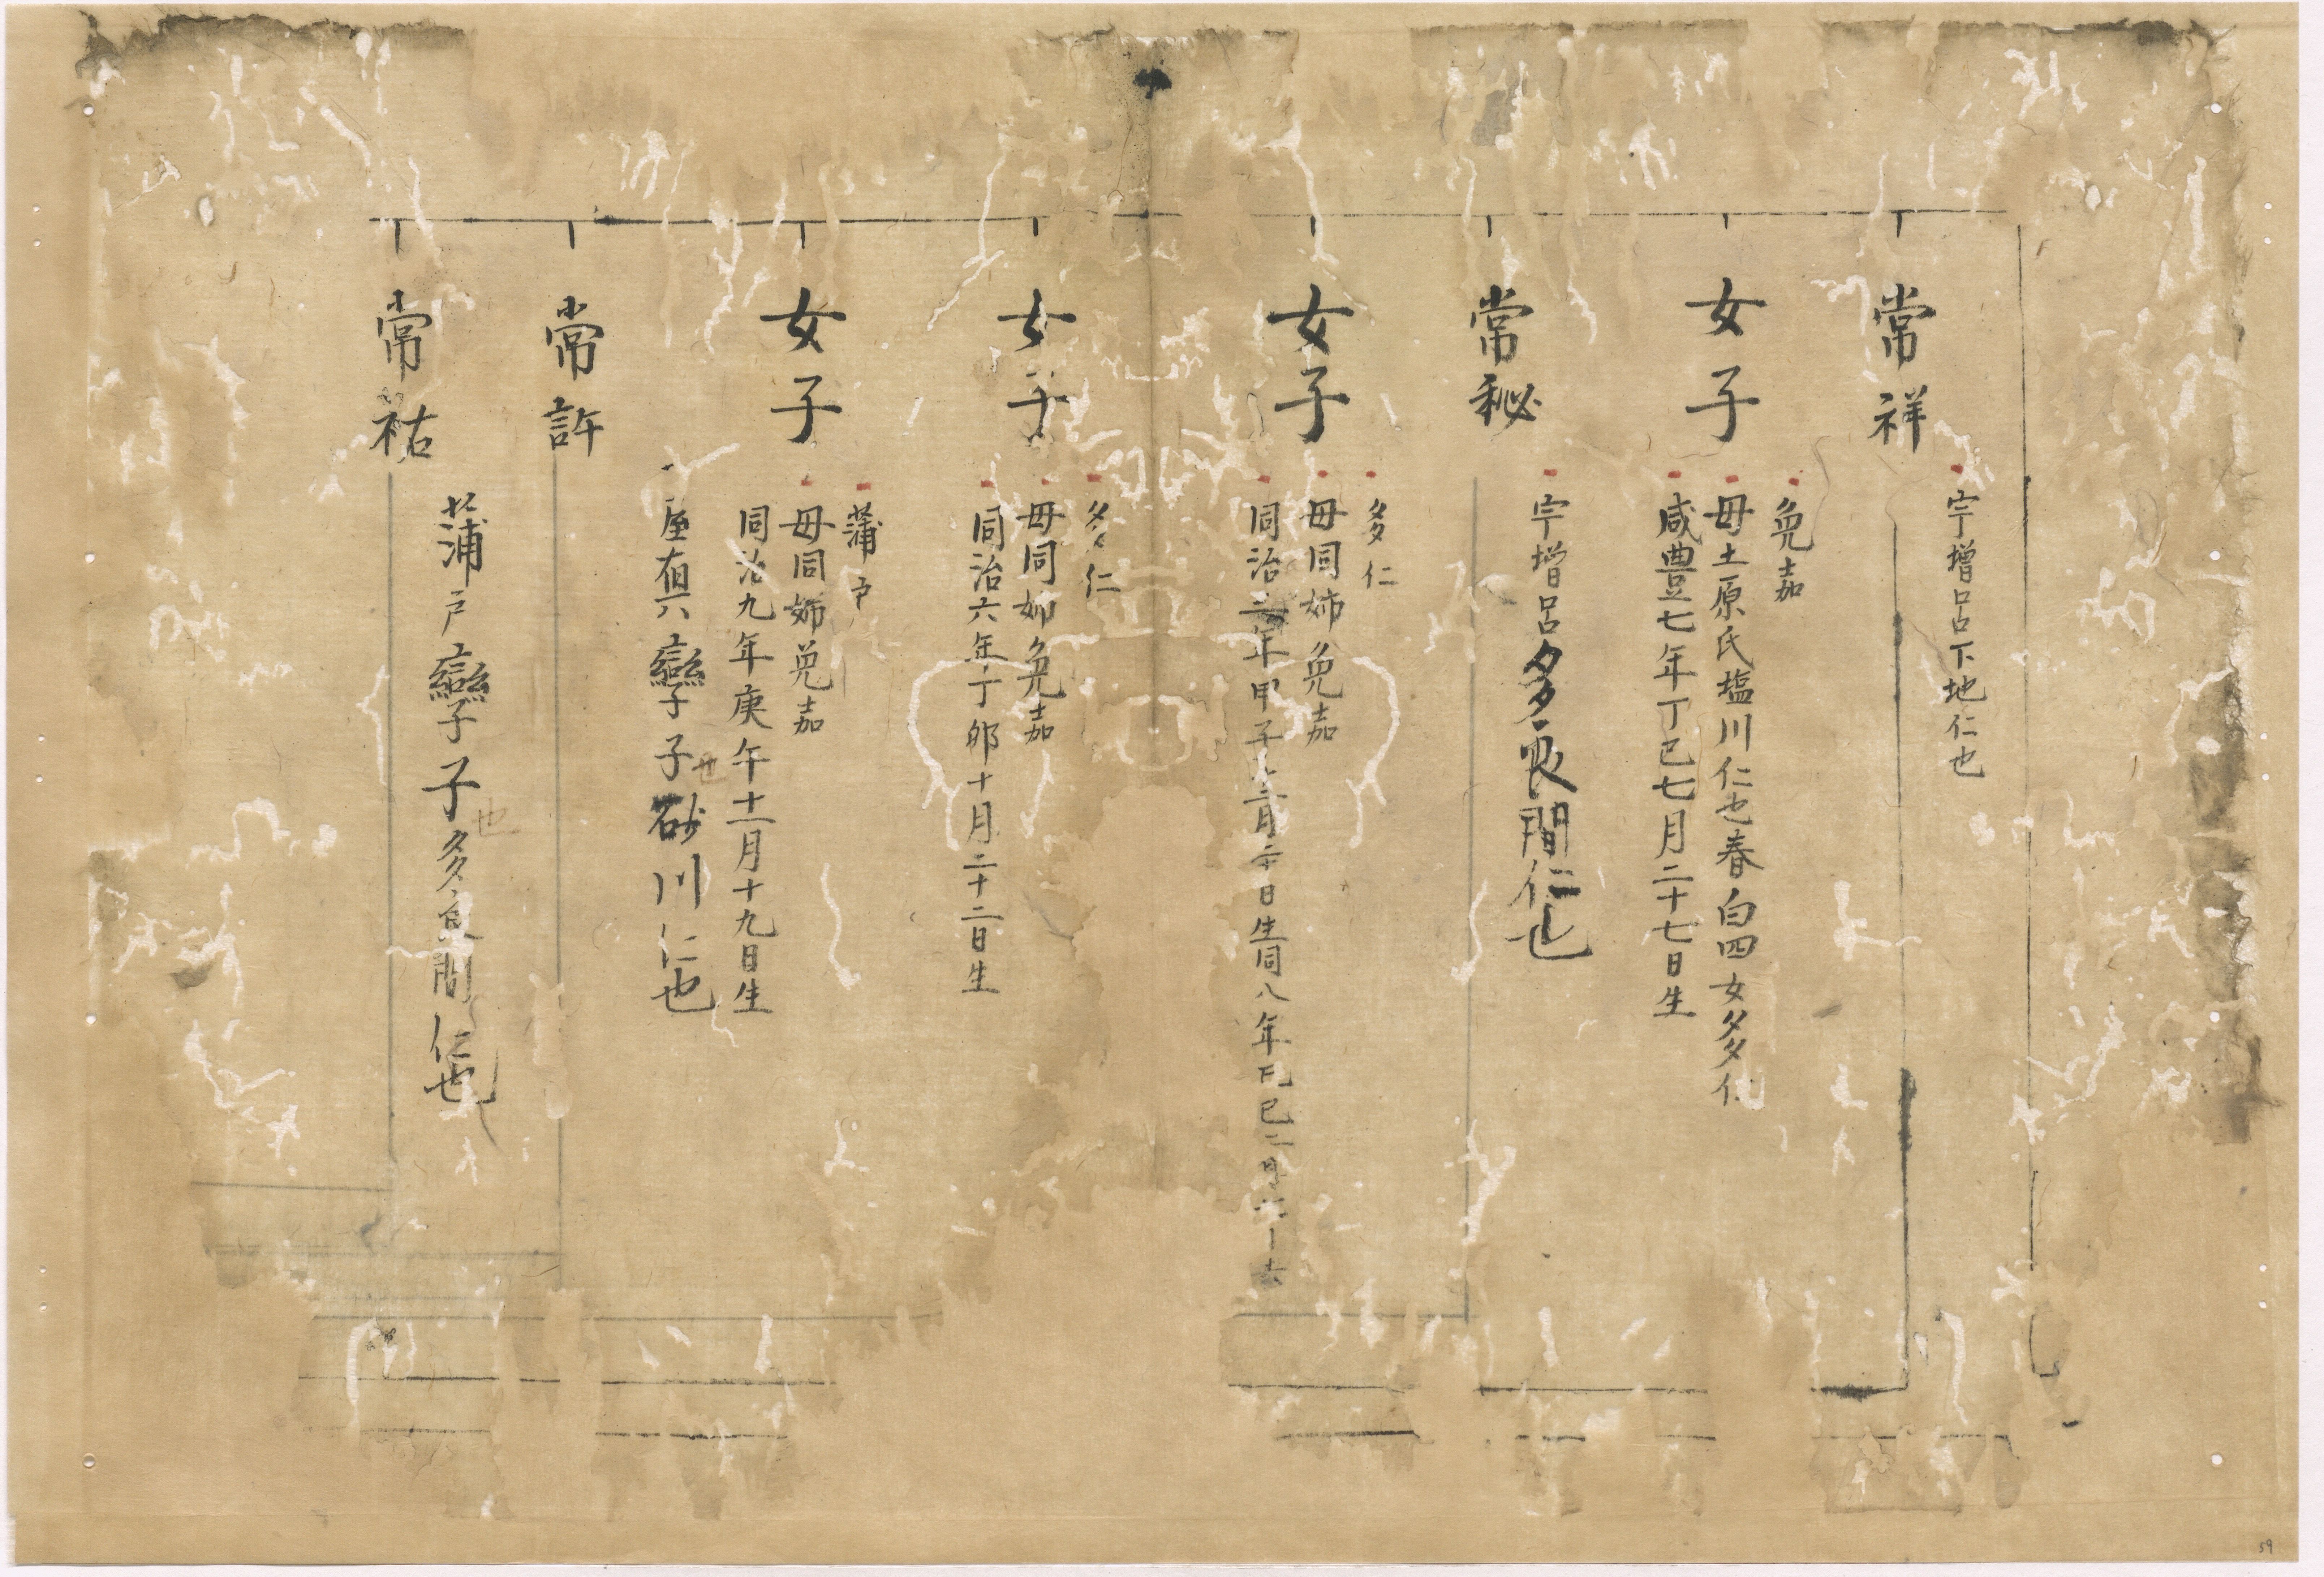 常祥
宇増呂下地仁也
女子
免嘉
母土原氏塩川仁也春白四女多仁
咸豊七年丁巳七月二十七日生
常秘
宇増呂多良間仁也
女子
多仁
母同姉免嘉
同治三年甲子 月二十日生同八年己巳二月
女子
多仁
母同姉免嘉
同治六年丁卯十月二十二日生
女子
蒲戸
母同姉免嘉
同治九年庚午十一月十九日生
常許
屋真 孿子子也砂川仁也
常祐
蒲戸孿子子也多良間仁也
59